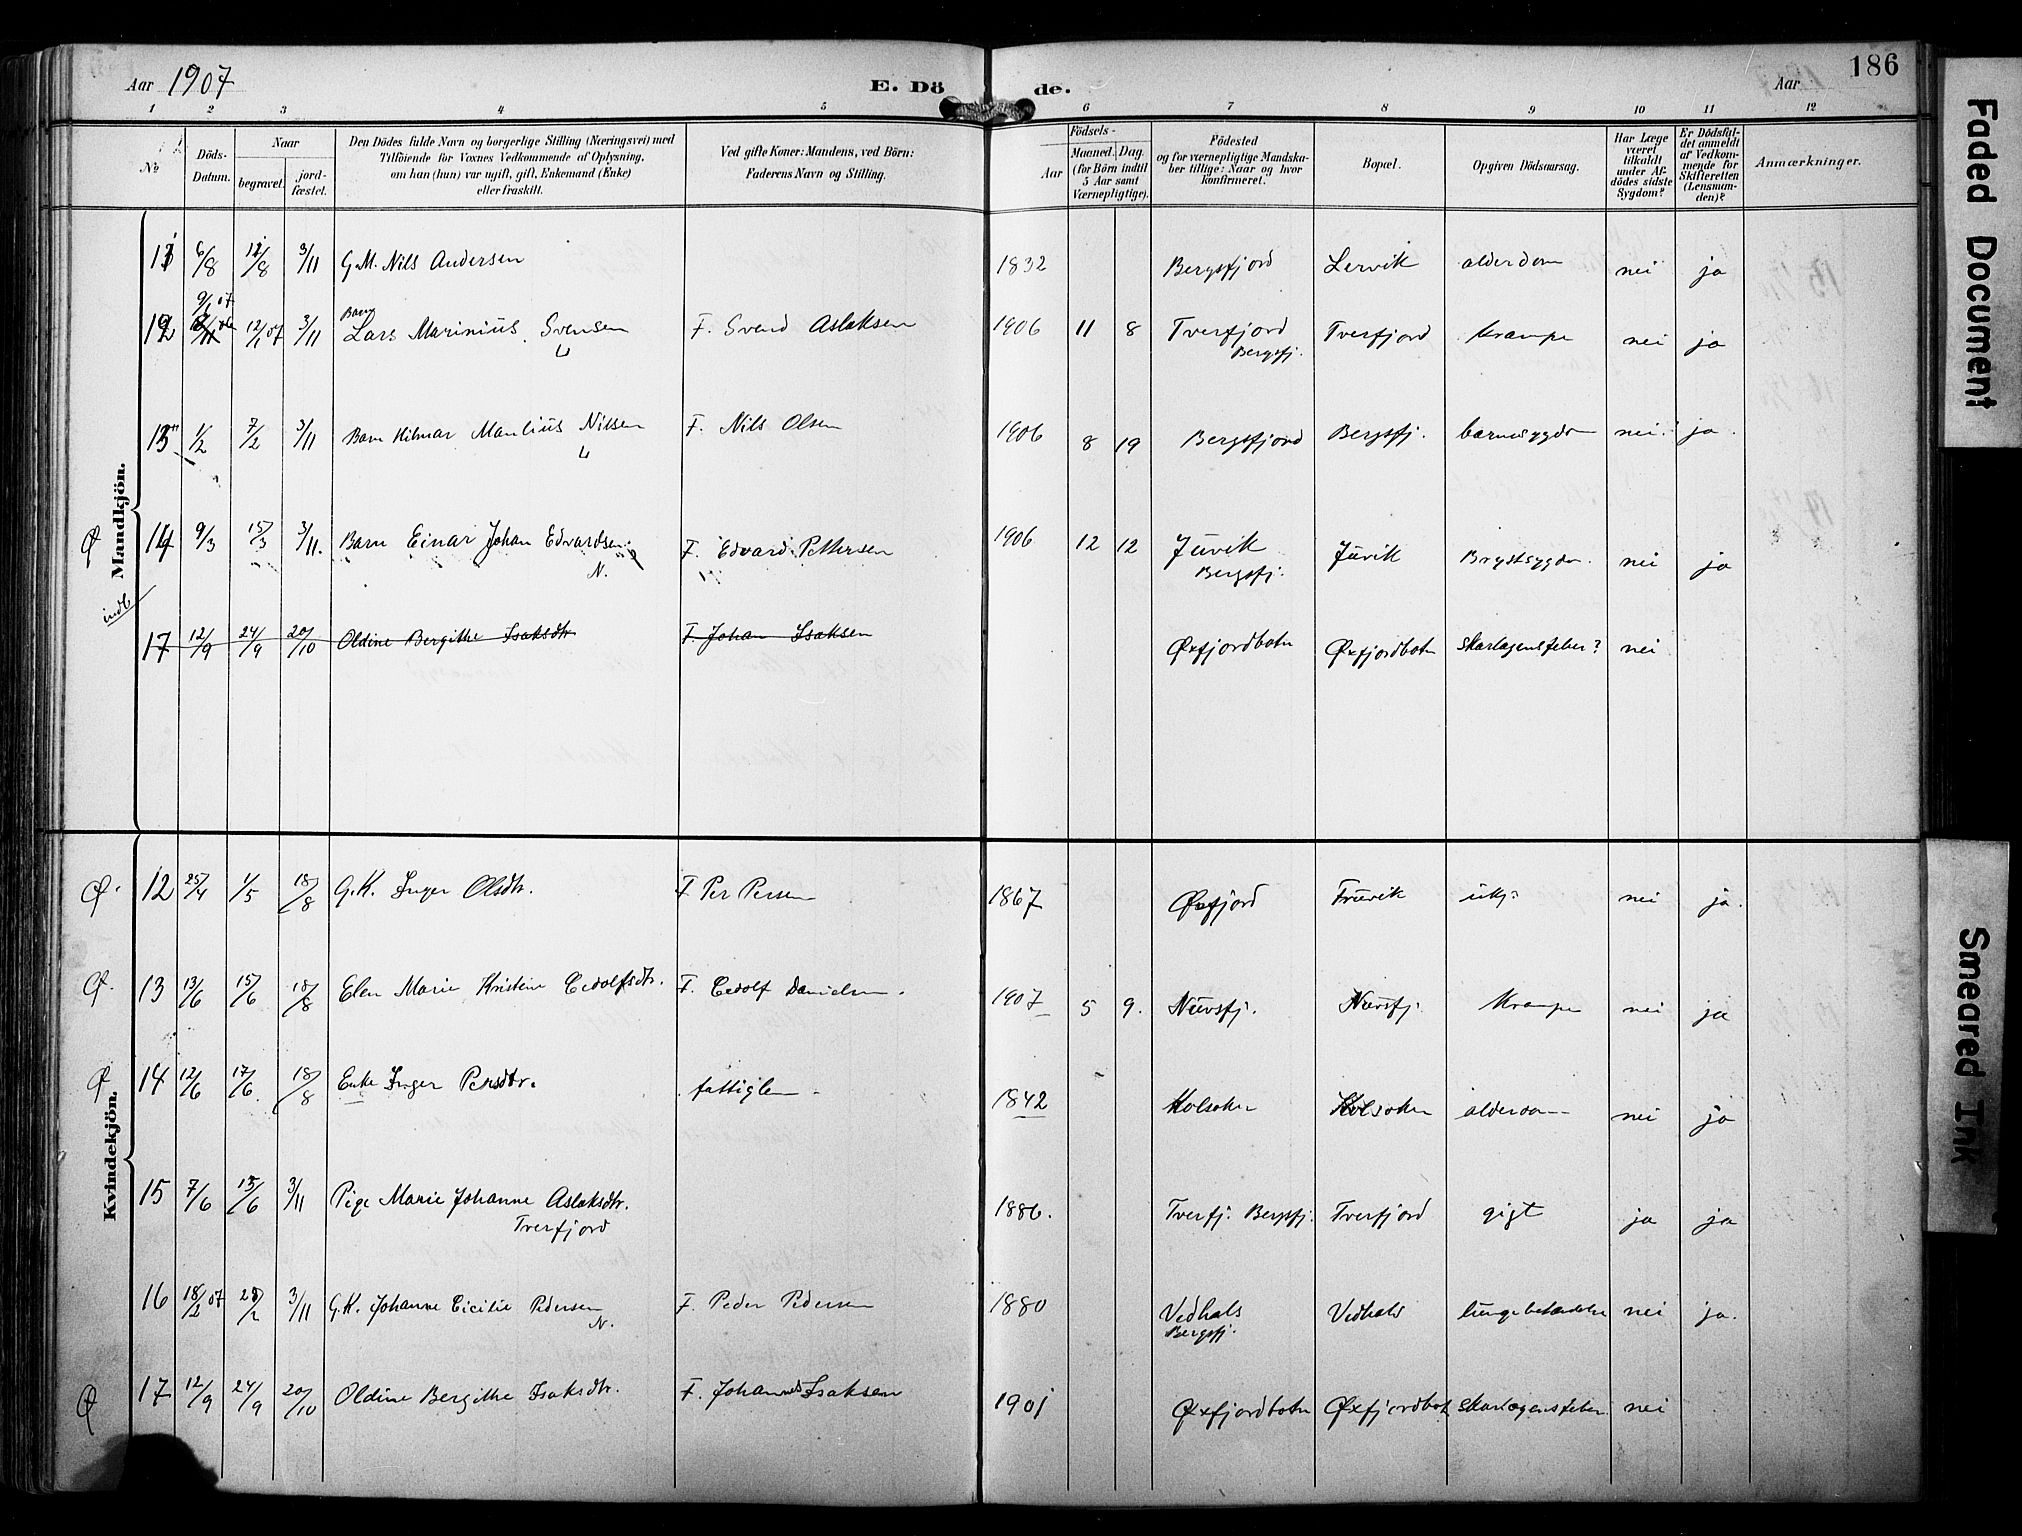 186
Aar 1907 E. Dö de. Aar
1 2 3 4 5 6 7 8 9 10 11 12
No
Döds-Datum.
Naar
begravet. jord-fæstet.
Den Dödes fulde Navn og borgerlige Stilling (Næringsvei) med
Tilföiende for Voxnes Vedkommende af Oplysning,
om han (hun) var ugift, gift, Enkemand (Enke)
eller fraskilt.
Ved gifte Koner: Mandens, ved Börn:
Faderens Navn og Stilling.
Födsels-
Aar
Maaned. Dag.
(for Börn indtil
5 Aar samt
Værnepligtige).
Födested
og for værnepligtige Mandska-
ber tillige: Naar og hvor
konfirmeret.
Bopæl.
Opgiven Dödsaarsag.
Har Læge
været
tilkaldt
under Af-
dödes sidste
Sygdom?
Er Dödsfal-
det anmeldt
af Vedkom-
mende for
Skifteretten
(Lensman-
den)?
Anmærkninger.
Mandkjön.
11 6/8 12/8 3/11 G.M. Nils Andersen 1832 Bergsfjord Lervik alderdom nei ja
12 9/1 07 12/1 07 3/11 Barn Lars Marinius Svensen F. Svend Aslaksen 1906 11 8 Tverfjord Tverfjord krampe nei ja
L Bergsfj.
13 1/2 7/2 3/11 Barn Hilmar Manlius Nilsen F. Nils Olsen 1906 8 19 Bergsfjord Bergsfj. barnesygdom nei ja.
L
Ø 14 9/3 15/3 3/11. Barn Einar Johan Edvardsen F. Edvard Pettersen 1906 12 12 Jüvik Jüvik Brystsygdom. nei ja
N. Bergsfj.
indb
17 12/9 24/9 20/10 Oldine Bergithe Isaksdtr F Johan Isaksen Øxfjordbotn Øxfjordbotn Skarlagensfeber? nei
Kvindekjön.
Ø. 12 25/4 1/5 18/8 G.K. Inger Olsdtr. F Per Persen 1867 Øxfjord Früvik ukj: nei ja.
Ø. 13 13/6 15/6 18/8 Elen Marie Kristine Cedolfsdtr. F. Cedolf Danielsen. 1907 5 9. Nüvsfj. Nüvsfj. Krampe nei ja
Ø 14 12/6 17/6 18/8 Enke Inger Persdtr. fattiglem 1842 Kolsoker Kolsoker alderdom nei ja
15 7/6 15/6 3/11 Pige Marie Johanne Aslaksdtr. 1886. Tverfj. Bergsfj. Tverfjord gigt ja ja
Tverfjord
16 18/2 07 3/11 G.K. Johanne Cicilie Pedersen F. Peder Pedersen 1880 Vedhals Vedhals lungebetændelse nei ja.
N. Bergsfj.
Ø 17 12/9 24/9 20/10 Oldine Bergithe Isaksdtr. F. Johannes Isaksen 1901 Øxfjordbotn Øxfjordbot Skarlagensfeber nei
Faded Document
Smeared Ink